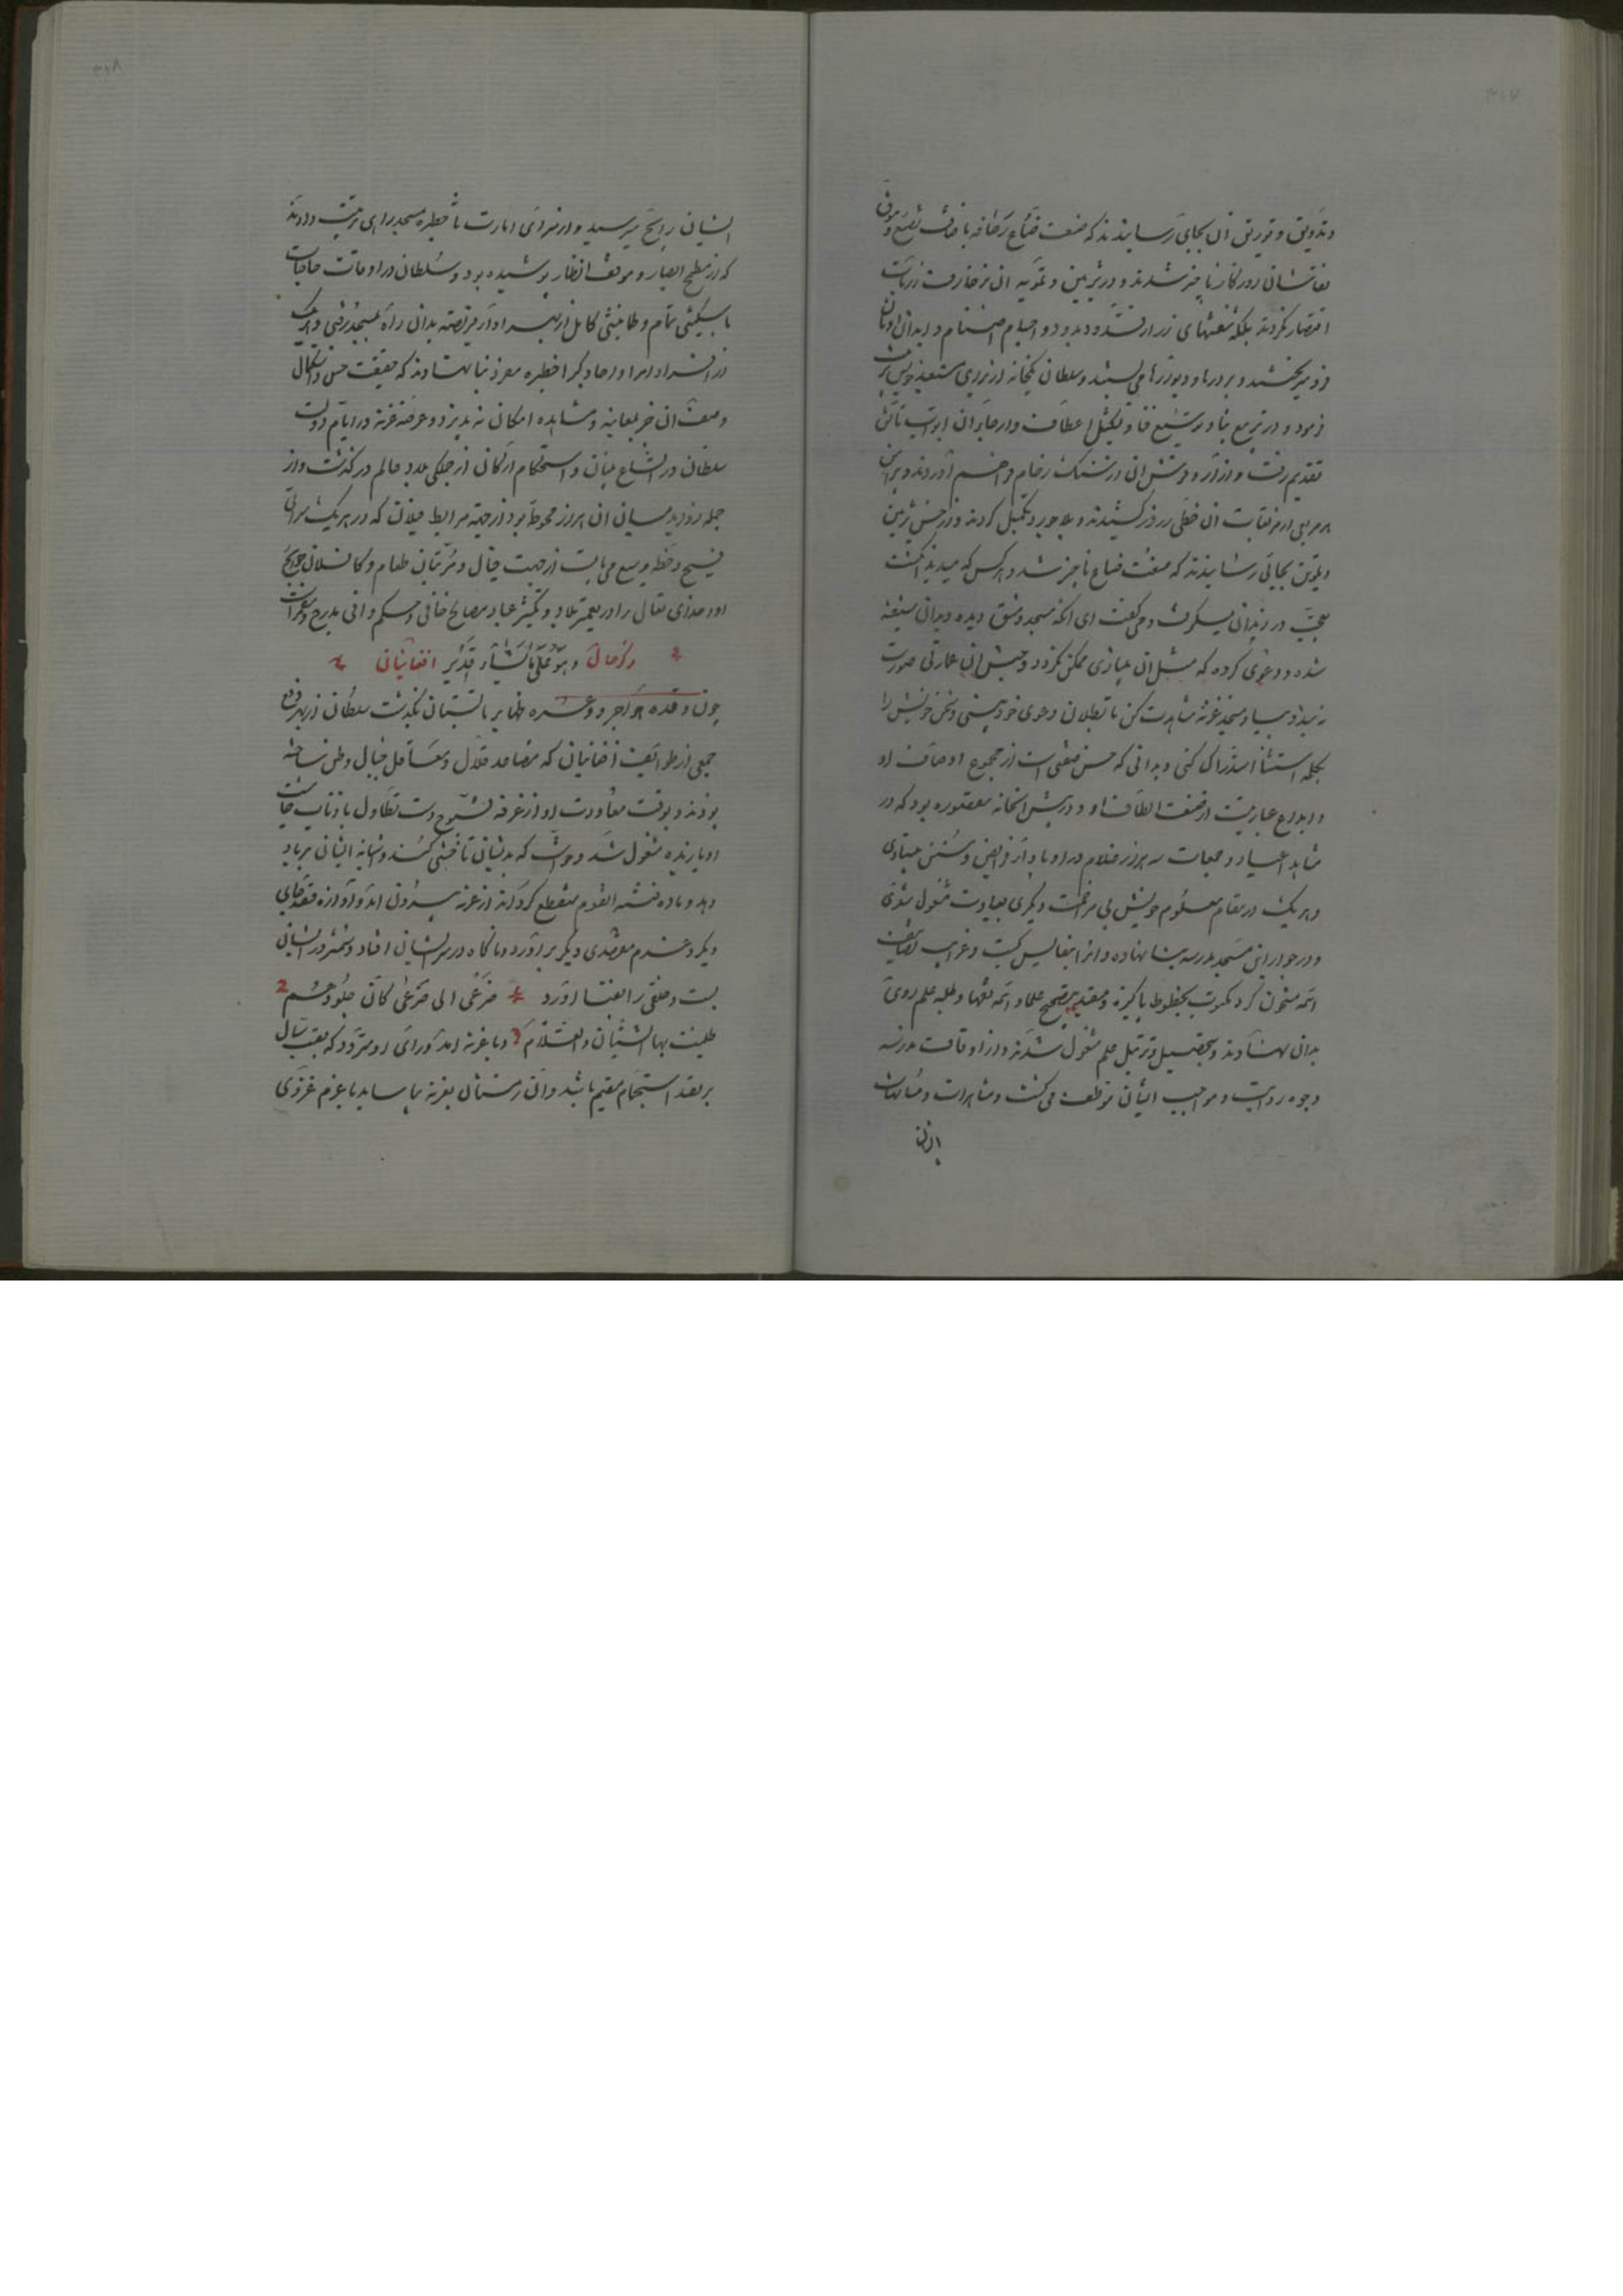 وتزویق و توریق آن بجایی رسانیدند که صنعت صناع رصافه با
نقاشان روزکار ناچیز شدند و در تزیین و تمویه آن بر زخارف
اقتصار نکردند بلکه شفشهای زر از و اجسام اصنام و ابدان اوثان
فرو میریختند و بر درها و دیوارها می بستند و سلطان خانه از برای متعبد خویش
فرمود و در تربیع بنا و توسیع فنا و اعطاف و ابواب
تقدیم رفت و ازار و فرش آن از سنک رخام فراهم آوردند و
هر مربعی از مربعات آن خطی زر در کشیدند و بلاجورد تکمیل کردند و از حسن تزیین
و تلوین بجایی رسانیدند که هرکس که میدید انکشت
تعجب در دندان میکرفت و می گفت ای آنکه مسجد دمشق دیده و بدان شیفته
شده و دعوی کرده که مثل آن بنیادی ممکن نکردد و جنس آن عمارتی صورت
نبندد بیا و مسجد غزنه مشاهدت کن تا بطلان دعوی خود بینی و سخن خویش را
بکلمه استثنا استدراک کنی و بدانی که حسن صفتی است از مجموع اوصاف او
و ابداع عبارتیست از صنعت الطاف او و در پیش آن خانه مقصوره بود که در
مشاهد اعیاد و جمعات سه هزار غلام در او بادای فرایض و سنن
و هر یک در مقام معلوم خویش بی مزاحمت دیکری بعبادت مشغول شدی
و در جوار این مسجد مدرسه بنا نهاده و آنرا بنفایس کتب و غرایب تصانیف
ائمه مشحون کرد مکتوب بخطوط پاکیزه و مقید بتصحیح علما و ائمه فقها و طلبه علم روی
بدان نهادند و بتحصیل و ترتیل علم مشغول شدند و از اوقاف مدرسه
وجوه رواتب و مواجب ایشان موظف می کشت و مشاهرات و میاومات
ایشان رایج میرسید و از سرای امارت تا حظیره مسجد راهی ترتیب دادند
که از مطمح ابصار و موقف انظار پوشیده بود و سلطان در اوقات حاجات
با سکینتی تمام و طمانینتی کامل از بهر ادای فریضه بدان راه بمسجد رفتی و هریک
از افراد امرا و احاد کبرا حظیره مفرد بنا نهادند که حقیقت حسن و کمال
وصف آن جز بمعاینه و مشاهده امکان نپذیرد و عرصه غزنه در ایام دولت
سلطان در اتساع بنیان و استحکام ارکان از جملکی بلاد عالم درکذشت و از
جمله آن هزار محوطه بود از جهة مرابط فیلان که در هر یک سرای
فسیح و خطه وسیع می بایست از جهت فیال و مرتبان طعام و
او و خدای تعالی را در تعمیر بلاد و تکثیر عباد مصالح خافی و حکم وافی
ذکر حال افغانیان وهو علی ما یشاء قدیر
چون وقده هواجر و بتابستان بکذشت سلطان از بهر دفع
جمعی از طوایف افغانیان که مصاعد قلال و معاقل جبال وطن ساخته
بودند و بوقت معاودت او از غزوه قنوج دست تطاول باذناب حاشیت
او یازیده مشغول شد و خواست که بدیشان تاختنی کند و آشیانه ایشان برباد
دهد و ماده فتنه آن قوم منقطع کرداند از غزنه بیرون آمد و آوازه قصد جای
دیگر و عزم مقصدی دیگر برآورد و ناگاه در سر ایشان افتاد و شمشیر در ایشان
بست و خلقی را بفنا آورد صرعی الی صرعی کان جلودهم
طلیت بها الشیان والعلام و با غزنه آمد و رای او متردد که بقیت سال
بر قصد استجمام مقیم باشد و آن زمستان بغزنه بیاساید یا عزم غزوی